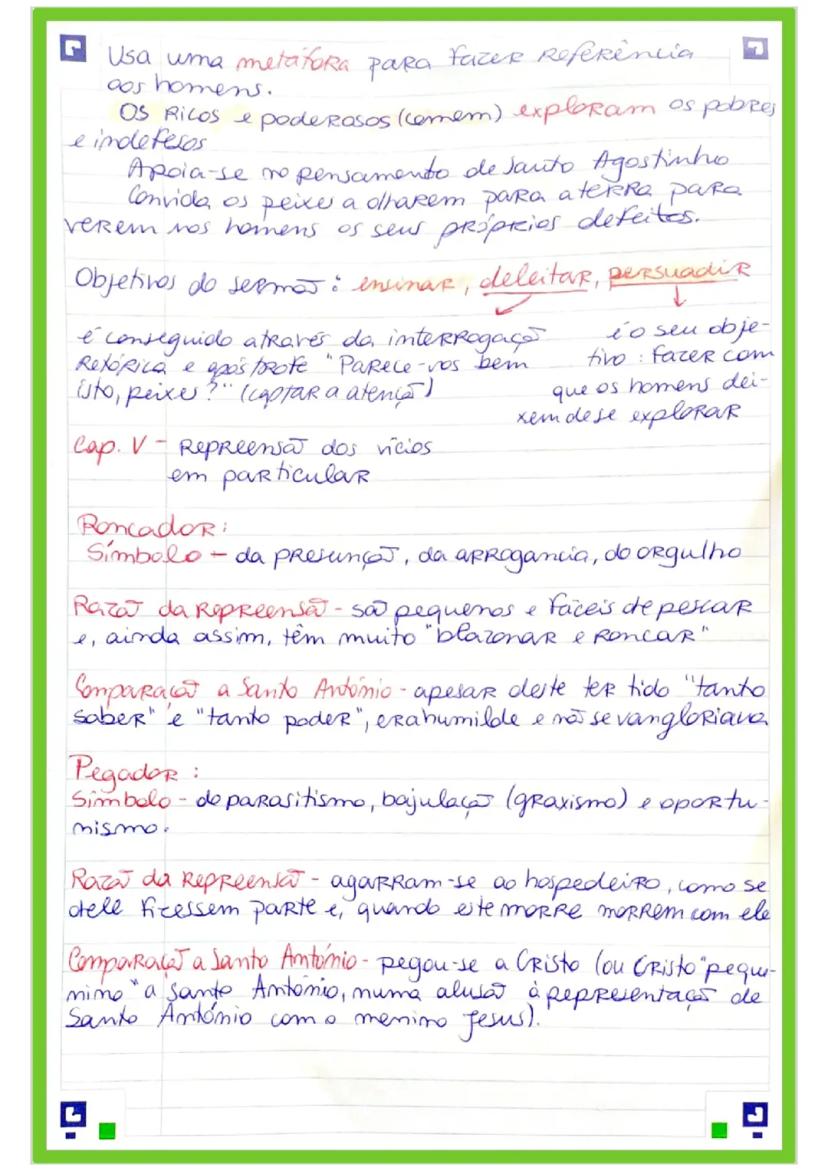 Usa uma metáfora para fazer referência
aos homens.
Os ricos e poderosos (comem) exploram os pobres
e indefesos
Apoia-se no pensamento de Santo Agostinho
Convida os peixes a olharem para a terra para
verem nos homens os seus próprios defeitos.
Objetivos do sermão: ensinar, deleitar, persuadir
é conseguido através da interrogação
retórica e apóstrofe "Parece-vos bem
isto, peixes?" (captar a atenção)
é o seu obje-
tivo: fazer com
que os homens dei-
xem de se explorar
Cap. V - Repreensão dos vícios
em particular
Roncador:
Símbolo - da presunção, da arrogancia, do orgulho
Razão da Repreensão - são pequenos e fáceis de pescar
e, ainda assim, têm muito "blazonar e roncar"
Comparação a Santo António - apesar deste ter tido "tanto
saber" e "tanto poder", era humilde e não se vangloriava
Pegador:
Símbolo - do parasitismo, bajulação (graxismo) e oportu-
nismo.
Razão da Repreensão - agarram-se ao hospedeiro, como se
dele fizessem parte e, quando este morre morrem com ele
Comparação a Santo António - pegou-se a Cristo (ou Cristo "pequi-
nino" a Santo António, numa alusão à representação de
Santo António com o menino Jesus).